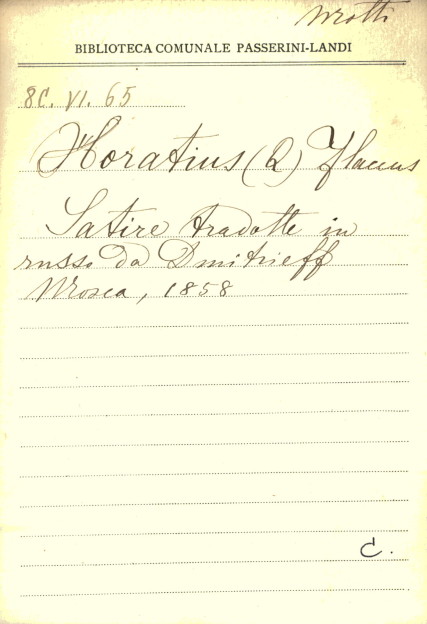 BIBLIOTECA COMUNALE PASSERINI-LANDI
8C. VI. 65
Horatius (Q) Flaccus
Satire tradotte in
russo da Dmitrieff
Mosca, 1858
C.